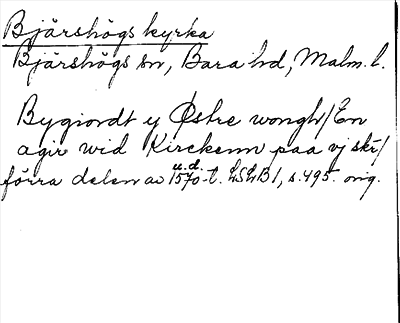 Bjärshögs kyrka
Bjärshögs sn, Bara hd, Malm. l.
Bygiordt y Østre wongh/En
agir wid Kirckenn paa vj skr/
förra delen av 1570-t. LSLB1, s.495. orig.
u.d.